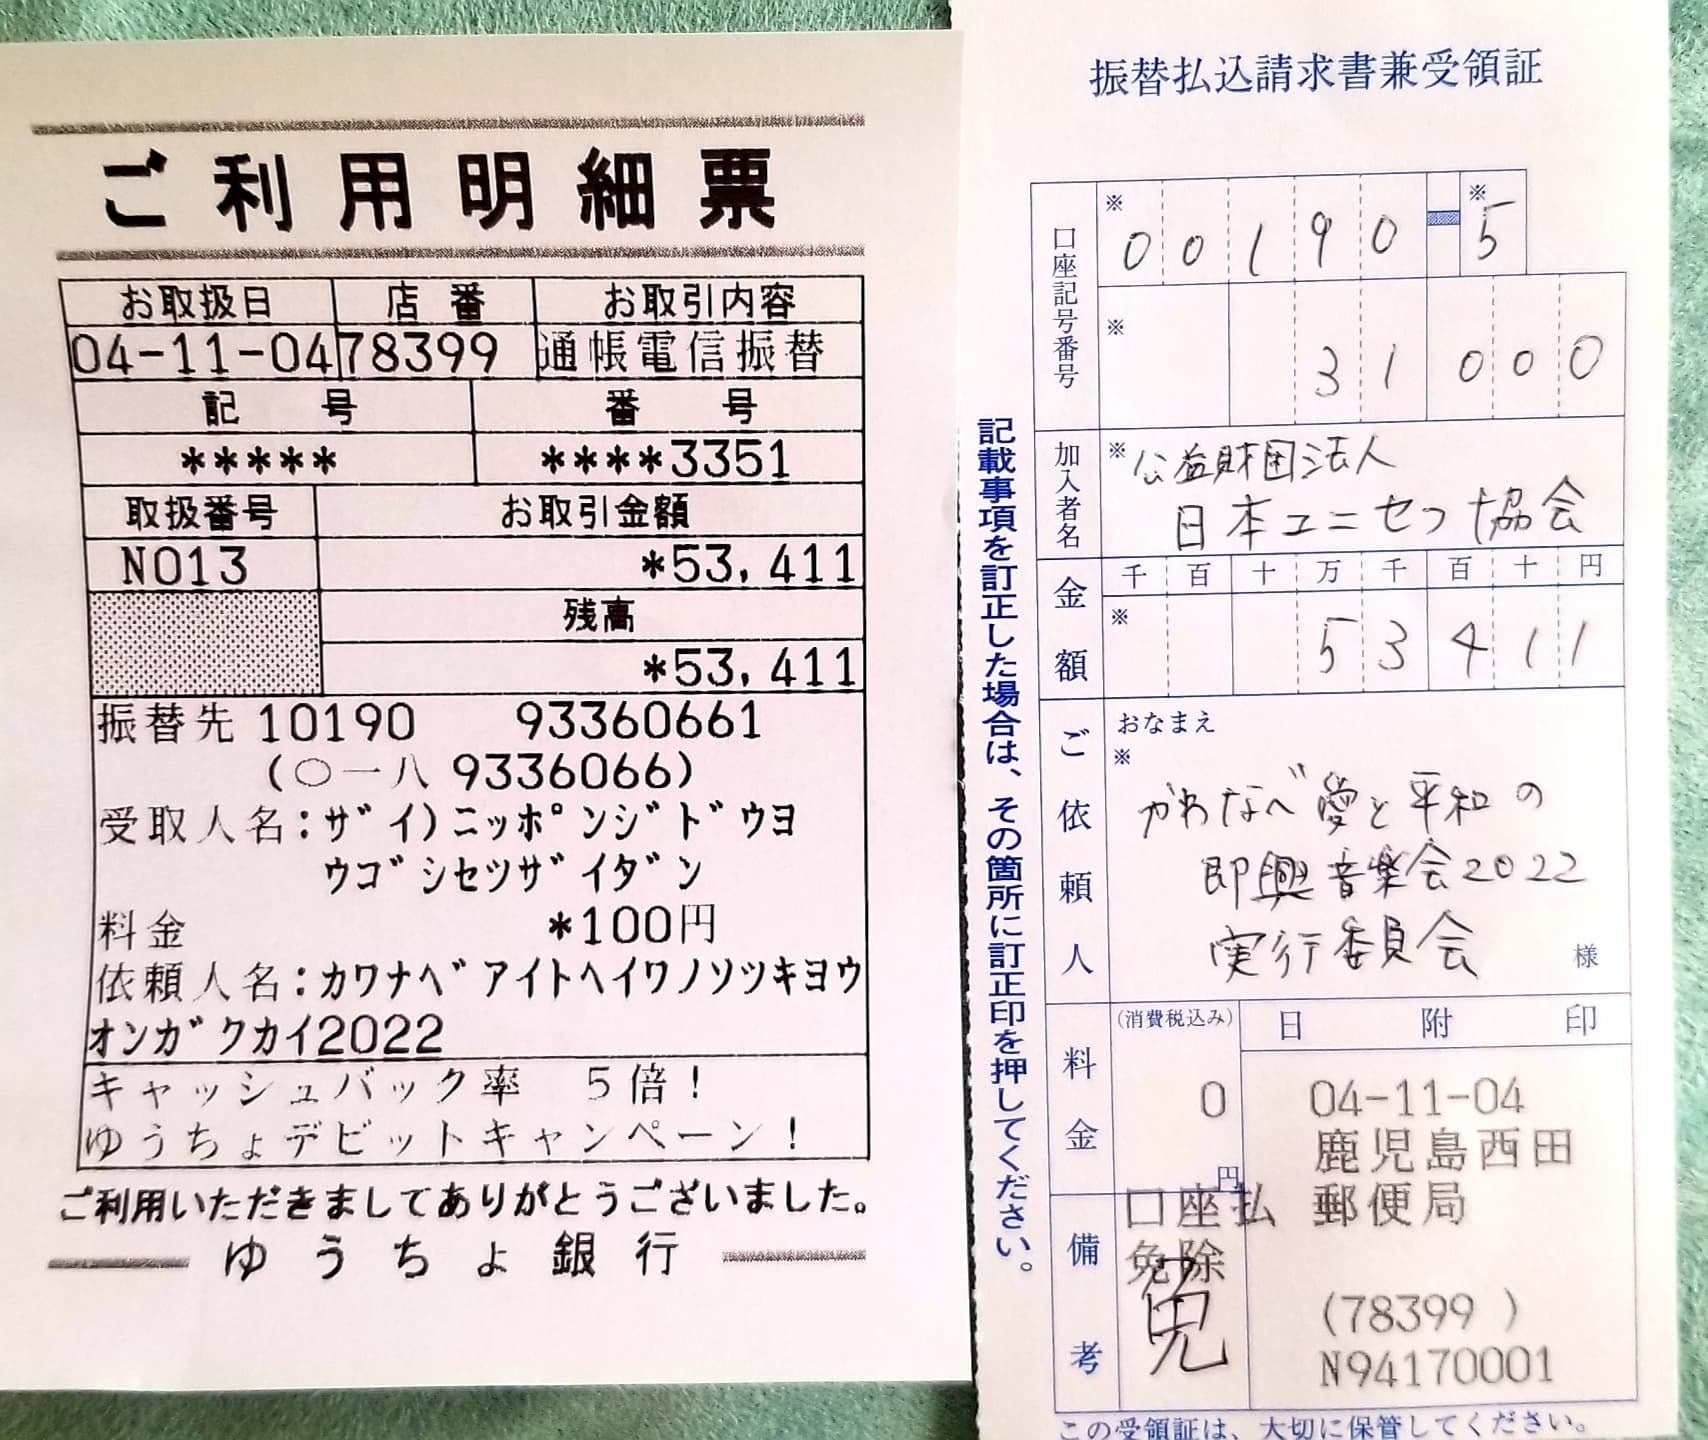 ご利用明細票
お取扱日 店番 お取引内容
04-11-04 78399 通帳電信振替
記号 番号
***** ****3351
取扱番号 お取引金額
N013 *53,411
残高
*53,411
振替先 10190 93360661
(〇一八 9336066)
受取人名:ザイ)ニッポンジドウヨ
ウゴシセツザイダン
料金 *100円
依頼人名:カワナベアイトヘイワノソツキヨウ
オンガクカイ2022
キャッシュバック率 5倍!
ゆうちょデビットキャンペーン!
ご利用いただきましてありがとうございました。
ゆうちょ銀行
振替払込請求書兼受領証
口座記号番号
※ 00190-※5
※ 31000
加入者名
※公益財団法人
日本ユニセフ協会
金額
千百十万千百十円
※ 53411
ご依頼人
おなまえ
※
かわなべ愛と平和の
即興音楽会2022
実行委員会 様
料金
(消費税込み)
0
円
日附印
04-11-04
鹿児島西田
郵便局
(78399 )
N94170001
備考
口座払
免除
記載事項を訂正した場合は、その箇所に訂正印を押してください。
この受領証は、大切に保管してください。